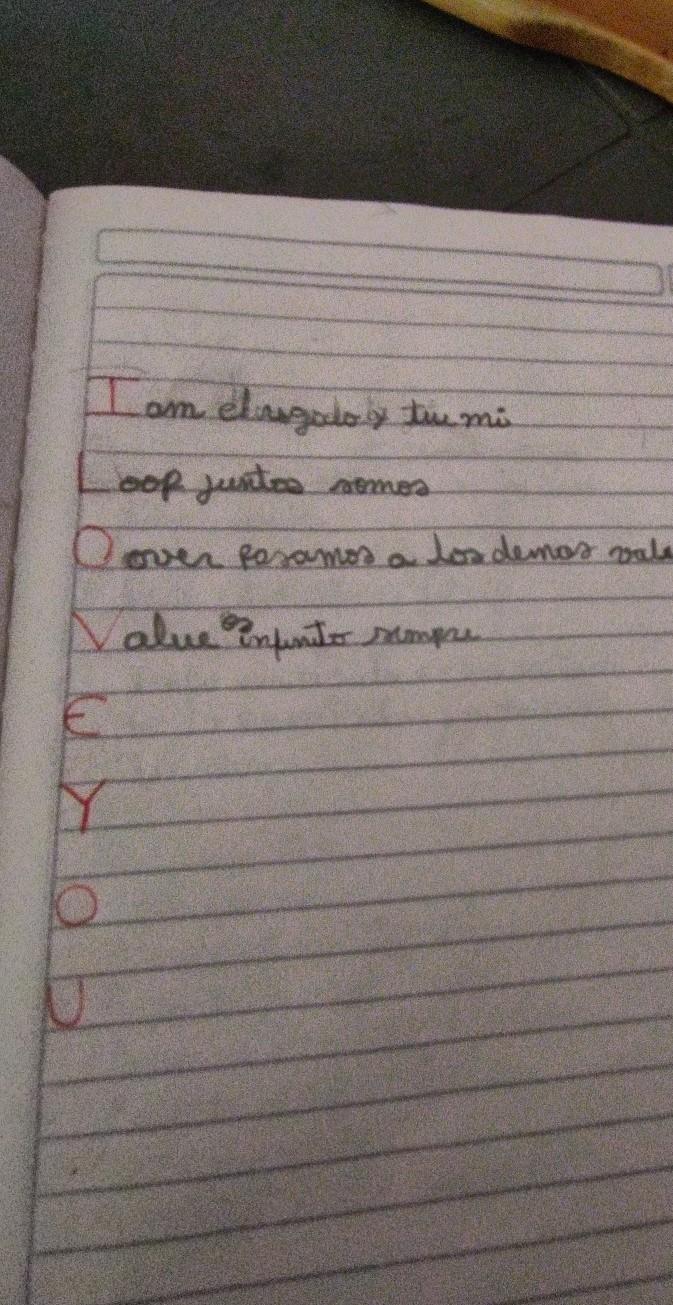 I am el regalo y tu mi
Loop juntos somos
O over pasamos a los demas vale
Value es infinito siempre
E
Y
O
U